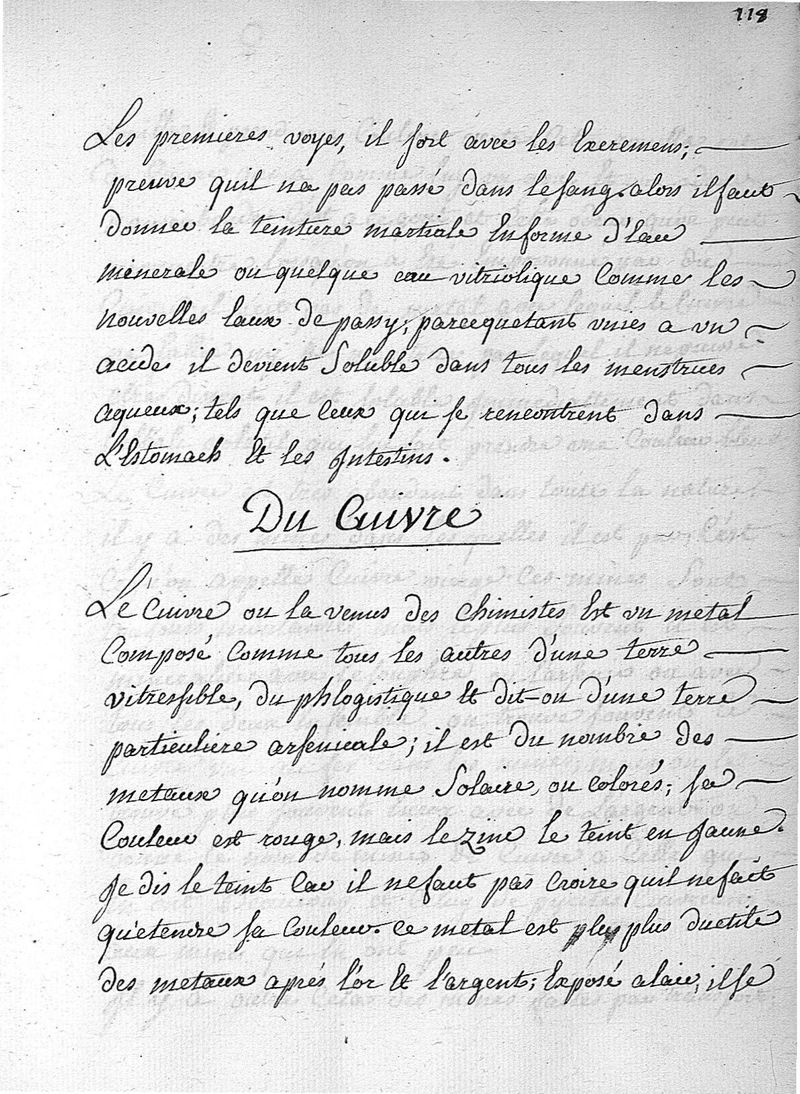 118
Les premieres voyes, il sort avec les Excremens;
preuve quil na pas passé dans le sang. alors il faut
donner la teinture martiale En forme d'Eau
minerale ou quelque eau vitriolique Comme les
nouvelles Eaux de passy; parcequetant unies a un
acide il devient Soluble dans tous les menstrues
aqueux; tels que Ceux qui se rencontrent dans
L'Estomach Et les Intestins.
Du Cuivre
Le Cuivre ou la venus des Chimistes Est un metal
Composé Comme tous les autres d'une terre
vitressible, du phlogistique Et dit-on d'une terre
particuliere arsenicale; il est du nombre des
metaux qu'on nomme Solaire, ou Colorés; sa
Couleur est rouge, mais le zinc le teint en Jaune.
Je dis le teint Car il ne faut pas croire quil ne fait
qu'etendre sa Couleur. ce metal est plus plus ductile
des metaux aprés l'or Et l'argent; Exposé a l'air, il se